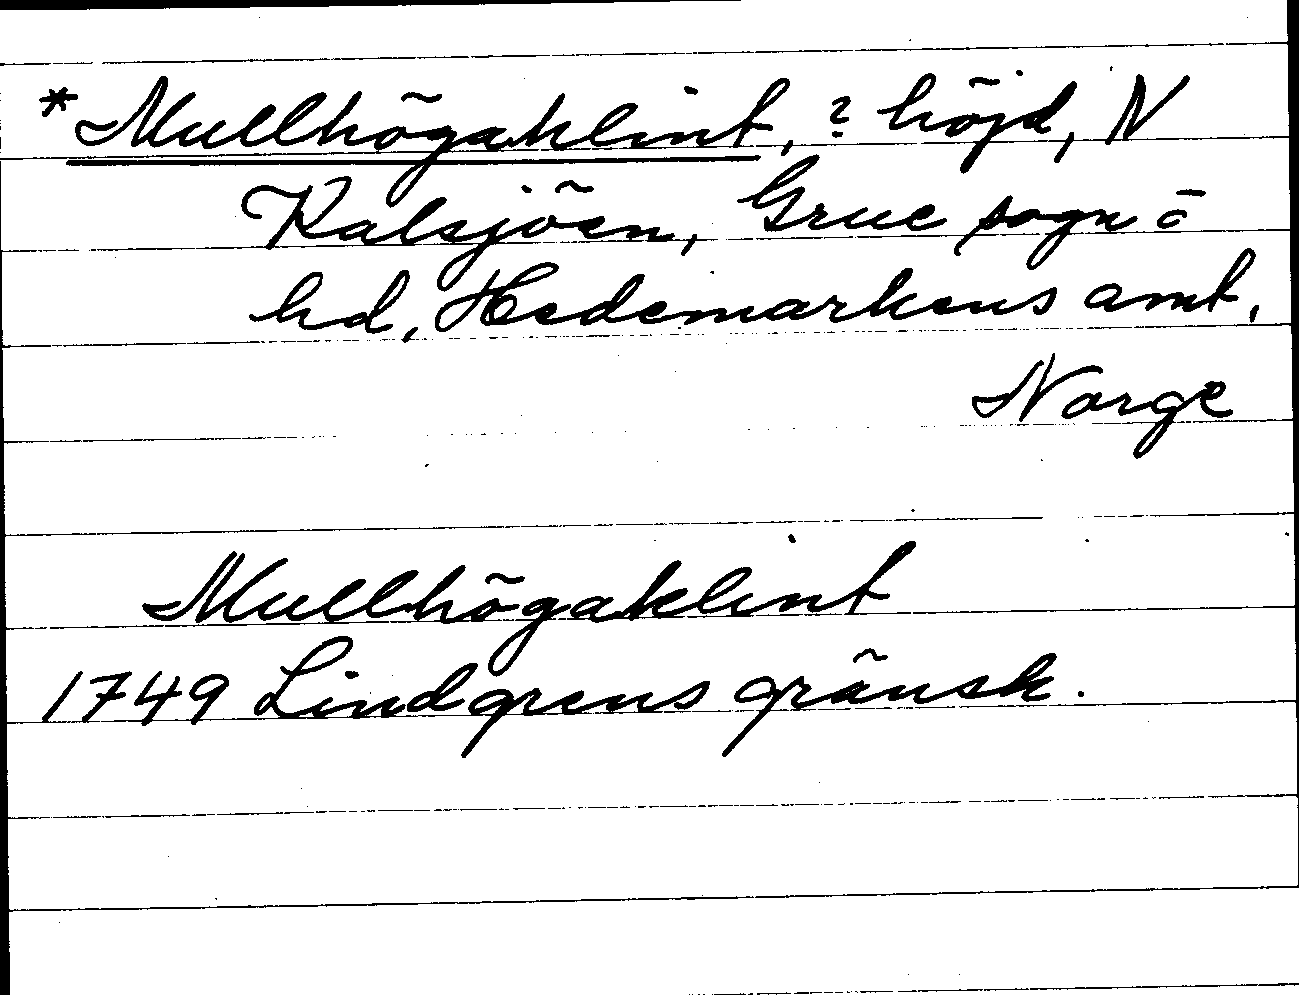 *Mullhögaklint, ? höjd, N
Kalsjöen, Grue sogn o
hd, Hedemarkens amt,
Norge
Mullhögaklint
1749 Lindgrens gränsk.